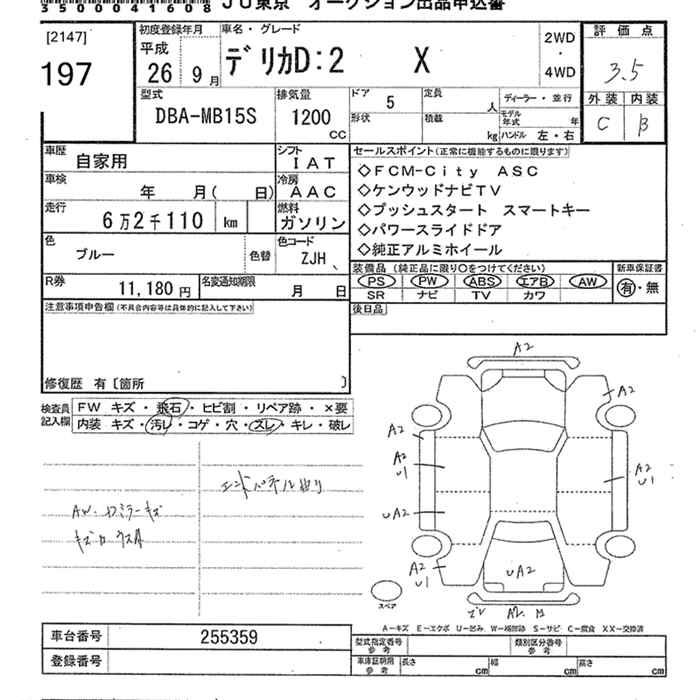 35000041608 JU東京 オークション出品申込書
[2147]
197
初度登録年月
平成
26 9月
車名・グレード
デリカD:2 X
2WD
・
4WD
評価点
3.5
外装 内装
C B
型式
DBA-MB15S
排気量
1200
CC
ドア 5
形状
定員 人
積載 kg
ディーラー・並行
モデル年式 年
ハンドル 左・右
車歴 自家用
シフト IAT
車検 年 月( 日)
冷房 AAC
走行 6万2千110 km
燃料 ガソリン
色 ブルー 色替
色コード ZJH、
R券 11,180円
名変通知期限 月 日
セールスポイント(正常に機能するものに限ります)
◇FCM-City ASC
◇ケンウッドナビTV
◇プッシュスタート スマートキー
◇パワースライドドア
◇純正アルミホイール
装備品(純正品に限り〇をつけてください)
新車保証書
PS PW ABS エアB AW
SR ナビ TV カワ
有・無
後日品
注意事項申告欄(不具合内容等は具体的に記入して下さい)
修復歴 有〔箇所 〕
検査員記入欄
FW キズ・飛石・ヒビ割・リペア跡・×要
内装 キズ・汚レ・コゲ・穴・スレ・キレ・破レ
エンドパネル曲り
AW.ドアミラーキズ
A2
A2
A2
A2
U1
A2
U1
UA2
A2
U1
UA2
スペア
A-キズ E-エクボ U-凹み W-補修跡 S-サビ C-腐食 XX-交換済
車台番号 255359
登録番号
型式指定番号 参考
類別区分番号 参考
車庫証明用 参考
長さ cm 幅 cm 高さ cm